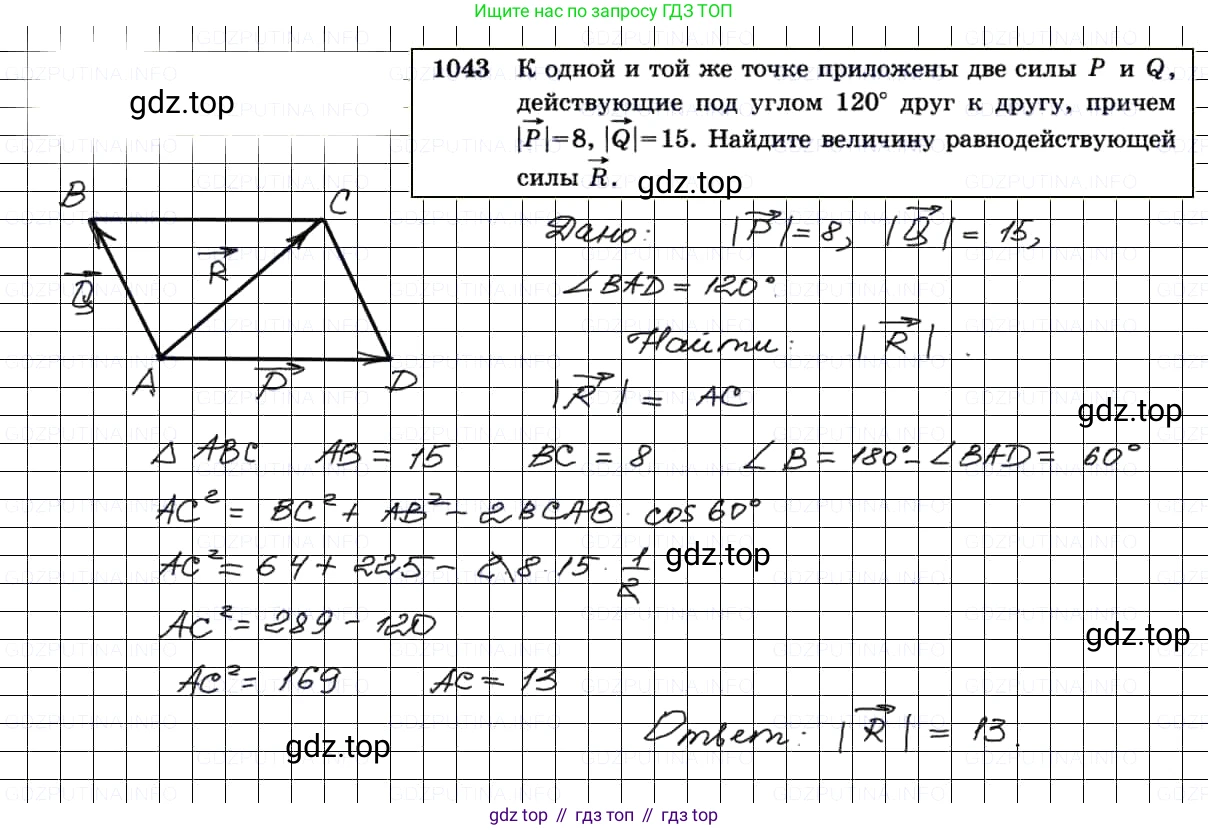 Ищите нас по запросу ГДЗ ТОП
1043 К одной и той же точке приложены две силы P и Q,
действующие под углом 120° друг к другу, причем
|P|=8, |Q|=15. Найдите величину равнодействующей
силы R.
gdz.top
gdz.top
B
C
Q
R
A
P
D
Дано: |P| = 8, |Q| = 15,
∠BAD = 120°.
Найти: |R|.
|R| = AC
gdz.top
△ ABC AB = 15 BC = 8 ∠B = 180° - ∠BAD = 60°
AC² = BC² + AB² - 2BCAB · cos 60°
AC² = 64 + 225 - 2\8 · 15 · 1/2
gdz.top
AC² = 289 - 120
gdz.top
AC² = 169 AC = 13
Ответ: |R| = 13.
gdz.top
GDZPUTINA.INFO
gdz top // гдз топ // gdz top